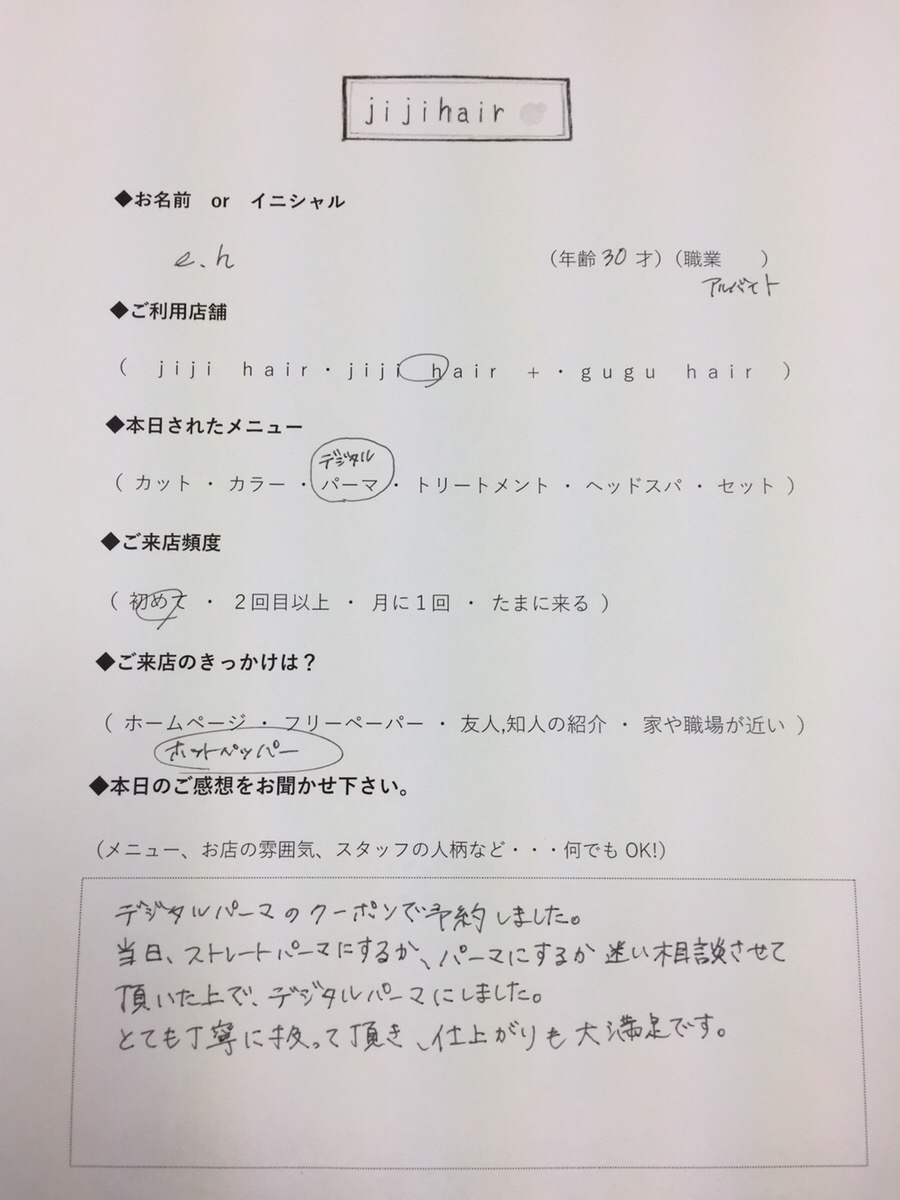 jijihair
◆お名前 or イニシャル
e.h （年齢 30 才）（職業 ）
アルバイト
◆ご利用店舗
（ jiji hair・jiji hair +・gugu hair ）
◆本日されたメニュー
デジタル
（ カット ・ カラー ・ パーマ ・ トリートメント ・ ヘッドスパ ・ セット ）
◆ご来店頻度
（ 初めて ・ ２回目以上 ・ 月に１回 ・ たまに来る ）
◆ご来店のきっかけは？
（ ホームページ ・ フリーペーパー ・ 友人,知人の紹介 ・ 家や職場が近い ）
ホットペッパー
◆本日のご感想をお聞かせ下さい。
（メニュー、お店の雰囲気、スタッフの人柄など・・・何でも OK!）
デジタルパーマのクーポンで予約しました。
当日、ストレートパーマにするか、パーマにするか迷い相談させて
頂いた上で、デジタルパーマにしました。
とても丁寧に扱って頂き、仕上がりも大満足です。